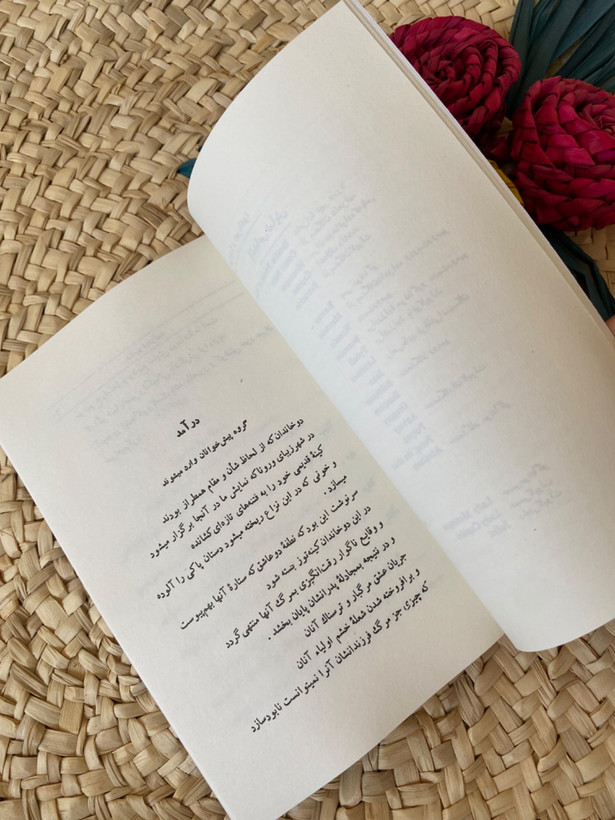 درآمد
گروه پیش‌خوانان وارد میشوند
دو خاندان که از لحاظ شأن و مقام همطراز بودند
در شهر زیبای ورونا که نمایش ما در آنجا برگزار میشود
کینهٔ قدیمی خود را به فتنه‌های تازه‌ای کشانده
و خونی که در این نزاع ریخته میشود دستان پاکی را آلوده
میسازد .
سرنوشت این بود که نطفهٔ دو عاشق که ستارهٔ آنها بهم پیوست
در این دو خاندان کینه‌توز بسته شود
و وقایع ناگوار رقت‌انگیزی بمرگ آنها منتهی گردد
و در نتیجه بمجادلهٔ پدرانشان پایان بخشد .
جریان عشق مرگبار و ترسناك آنان
و برافروخته شدن شعلهٔ خشم اولیاء آنان
که چیزی جز مرگ فرزندانشان آنرا نمیتوانست نابود سازد